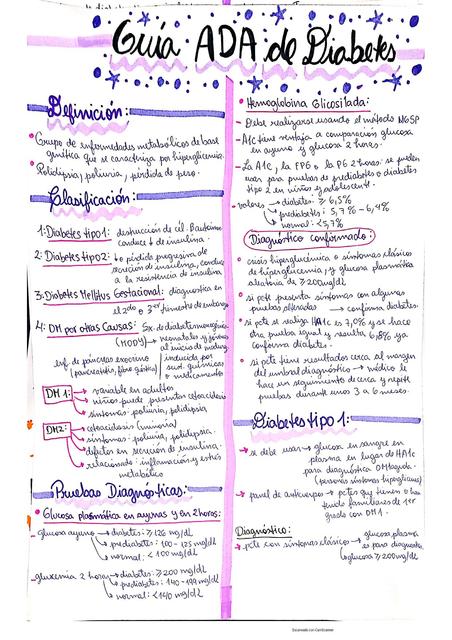 Guía ADA de Diabetes
Definición:
• Grupo de enfermedades metabólicos de base
genética que se caracteriza por hiperglicemia.
• Polidipsia, poliuria, pérdida de peso.
Clasificación:
1: Diabetes tipo 1: destrucción de cél. Bautoinm
conduce ↓ de insulina.
2: Diabetes tipo 2: ↓o pérdida progresiva de
secreción de insulina, conduce
a la resistencia de insulina
3: Diabetes Mellitus Gestacional: diagnostica en
el 2do o 3er trimestre de embarazo
4: DM por otras Causas: Sx. de diabetes monogénica
(MODY) → neonatales y jóvenes
al inicio de
enf. de páncreas exocrino
(pancreatitis, fibrosis quística)
inducida por
sust. químicas
o medicamento
DM 1: → variable en adultos
→ niños puede presentar cetoacidosis
→ síntomas: poliuria, polidipsia
DM2: → cetoacidosis (minoría)
→ síntomas: poliuria, polidipsia.
→ defectos en secreción de insulina.
→ relacionado: inflamación y estrés
metabólico
Pruebas Diagnósticas:
• Glucosa plasmática en ayunas y en 2 horas:
- glucosa ayuno → diabetes: ≥ 126 mg/dL
→ prediabetes: 100 - 125 mg/dL
→ normal: < 100 mg/dL
- glucemia 2 horas → diabetes: ≥ 200 mg/dL
→ prediabetes: 140 - 199 mg/dL
→ normal: < 140 mg/dL
• Hemoglobina Glicosilada:
- Debe realizarse usando el método NGSP
- A1c tiene ventaja a comparación glucosa
en ayuno y glucosa 2 horas.
- La A1C, la FPG o la PG 2 horas: se pueden
usar para pruebas de prediabetes o diabetes
tipo 2 en niños y adolescent.
- valores → diabetes: ≥ 6,5%
→ prediabetes: 5,7% - 6,4%
→ normal: < 5,7%
Diagnóstico confirmado:
• crisis hiperglucémica o síntomas clásicos
de hiperglucemia, y glucosa plasmática
aleatoria de ≥ 200 mg/dl
• si pcte presenta síntomas con algunas
pruebas alteradas → confirma diabetes.
• si pcte se realiza HA1c es 7,0% y se hace
otra prueba igual y resulta 6,8% ya
confirma diabetes.
• si pcte tiene resultados cerca al margen
del umbral diagnóstico → médico le
hace un seguimiento de cerca y repetir
pruebas durante unos 3 a 6 meses.
Diabetes tipo 1:
→ se debe usar → glucosa en sangre en
plasma en lugar de HA1c
para diagnóstica DM aguda
(personas síntomas hiperglucemia)
→ panel de anticuerpos → pctes que tienen o han
tenido familiares de 1er
grado con DM 1.
Diagnóstico:
→ pcte con síntomas clásicos → glucosa plasma
es para diagnostico
↳ glucosa ≥ 200 mg/dl
Escaneado con CamScanner